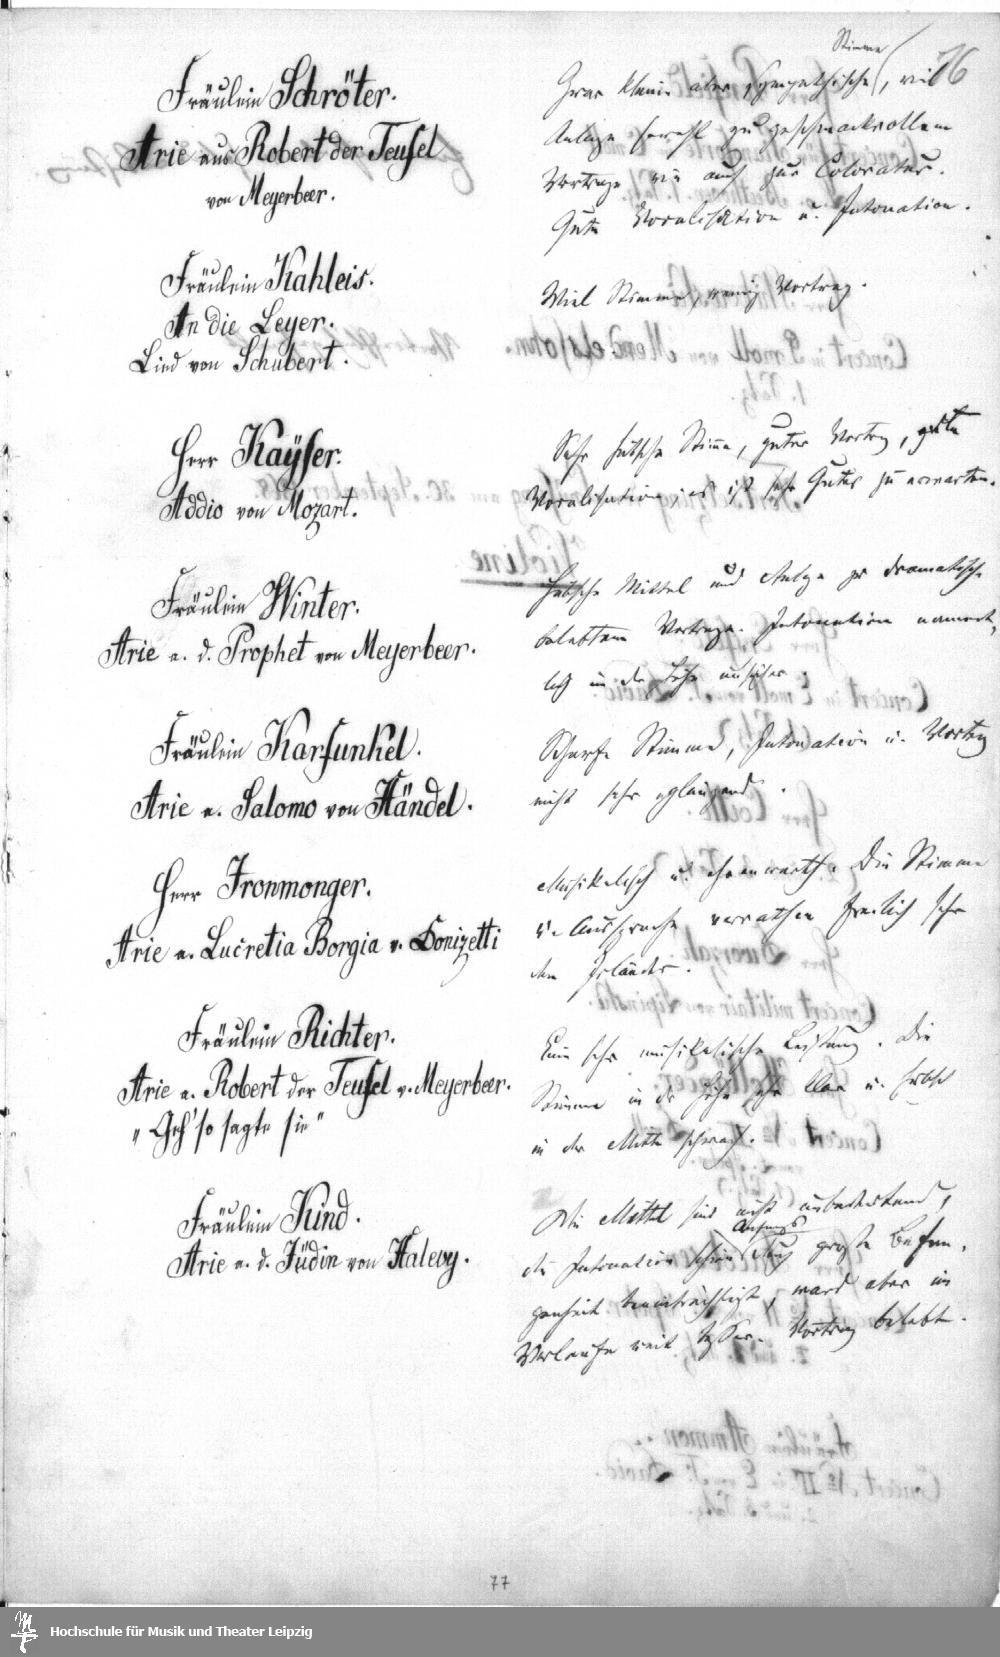 76
Fräulein Schröter.
Arie aus Robert der Teufel
von Meyerbeer.
Stimme
Zwar kleine aber sympathische, mit
Anlage sowohl zu geschmackvollem
Vortrage wie auch zur Coloratur.
Gute Vocalisation u. Intonation.
Fräulein Kahleis.
An die Leyer.
Lied von Schubert.
Viel Stimme, wenig Vortrag.
Herr Kaÿser.
Addio von Mozart.
Sehr hübsche Stimme, guter Vortrag, gute
Vocalisation; es ist sehr Gutes zu erwarten.
Fräulein Winter.
Arie a. d. Prophet von Meyerbeer.
Hübsche Mittel und Anlage zu dramatisch
belebtem Vortrage. Intonation nament-
lich in der Höhe unsicher.
Fräulein Karfunkel.
Arie a. Salomo von Händel.
Scharfe Stimme, Intonation u. Vortrag
nicht sehr glänzend.
Herr Ironmonger.
Arie a. Lucretia Borgia v. Donizetti
Musikalisch u. ehrenwerth. Die Stimme
u. Aussprache verrathen freilich sehr
den Irländer.
Fräulein Richter.
Arie a. Robert der Teufel v. Meyerbeer.
„Geh' so sagte sie"
Eine sehr musikalische Leistung. Die
Stimme in der Höhe sehr klar u. hübsch
in der Mitte schwach.
Fräulein Kind.
Arie a. d. Jüdin von Halevy.
Die Mittel sind nicht unbedeutend,
Anfangs
die Intonation schien durch große Befan-
genheit beeinträchtigt, ward aber im
Verlaufe weit besser. Vortrag belebt.
77
Hochschule für Musik und Theater Leipzig